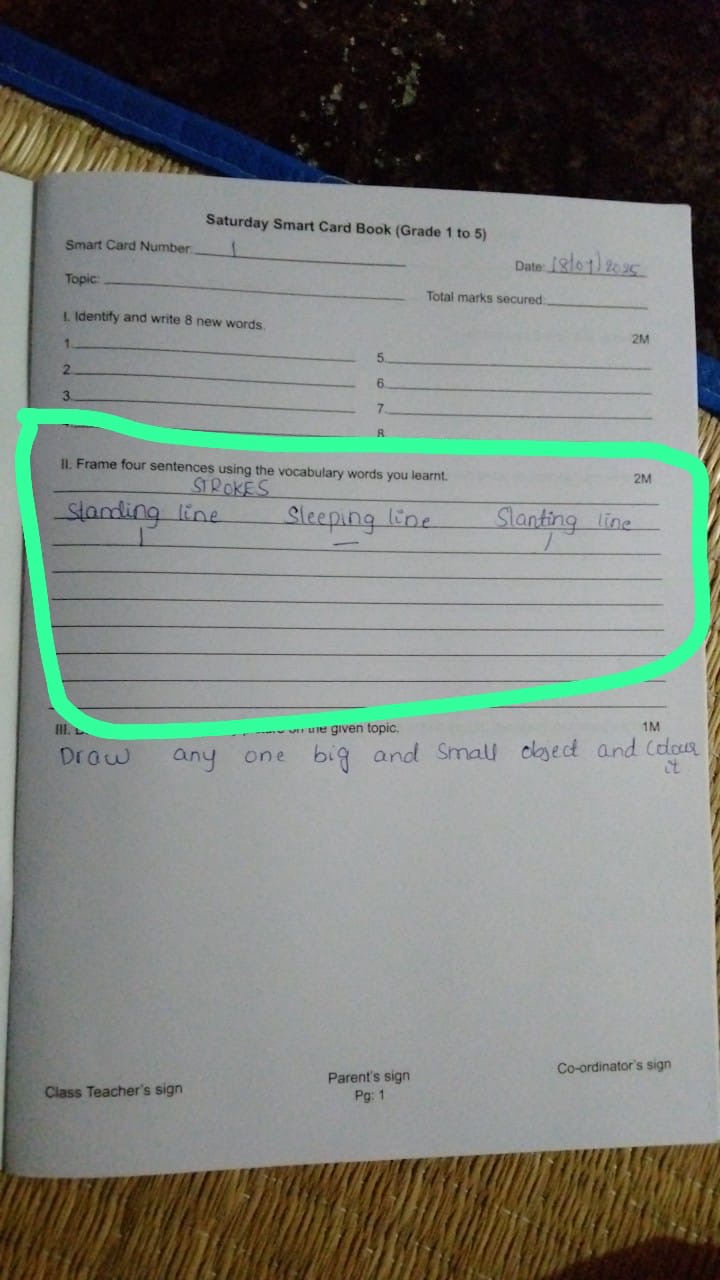 Saturday Smart Card Book (Grade 1 to 5)
Smart Card Number: 1
Date: 18/07/2025
Topic:
Total marks secured:
I. Identify and write 8 new words.
2M
1.
5.
2.
6.
3.
7.
8.
II. Frame four sentences using the vocabulary words you learnt.
2M
STROKES
Standing line Sleeping line Slanting line
| — /
III. on the given topic.
1M
Draw any one big and small object and colour
it
Class Teacher's sign
Parent's sign
Co-ordinator's sign
Pg: 1